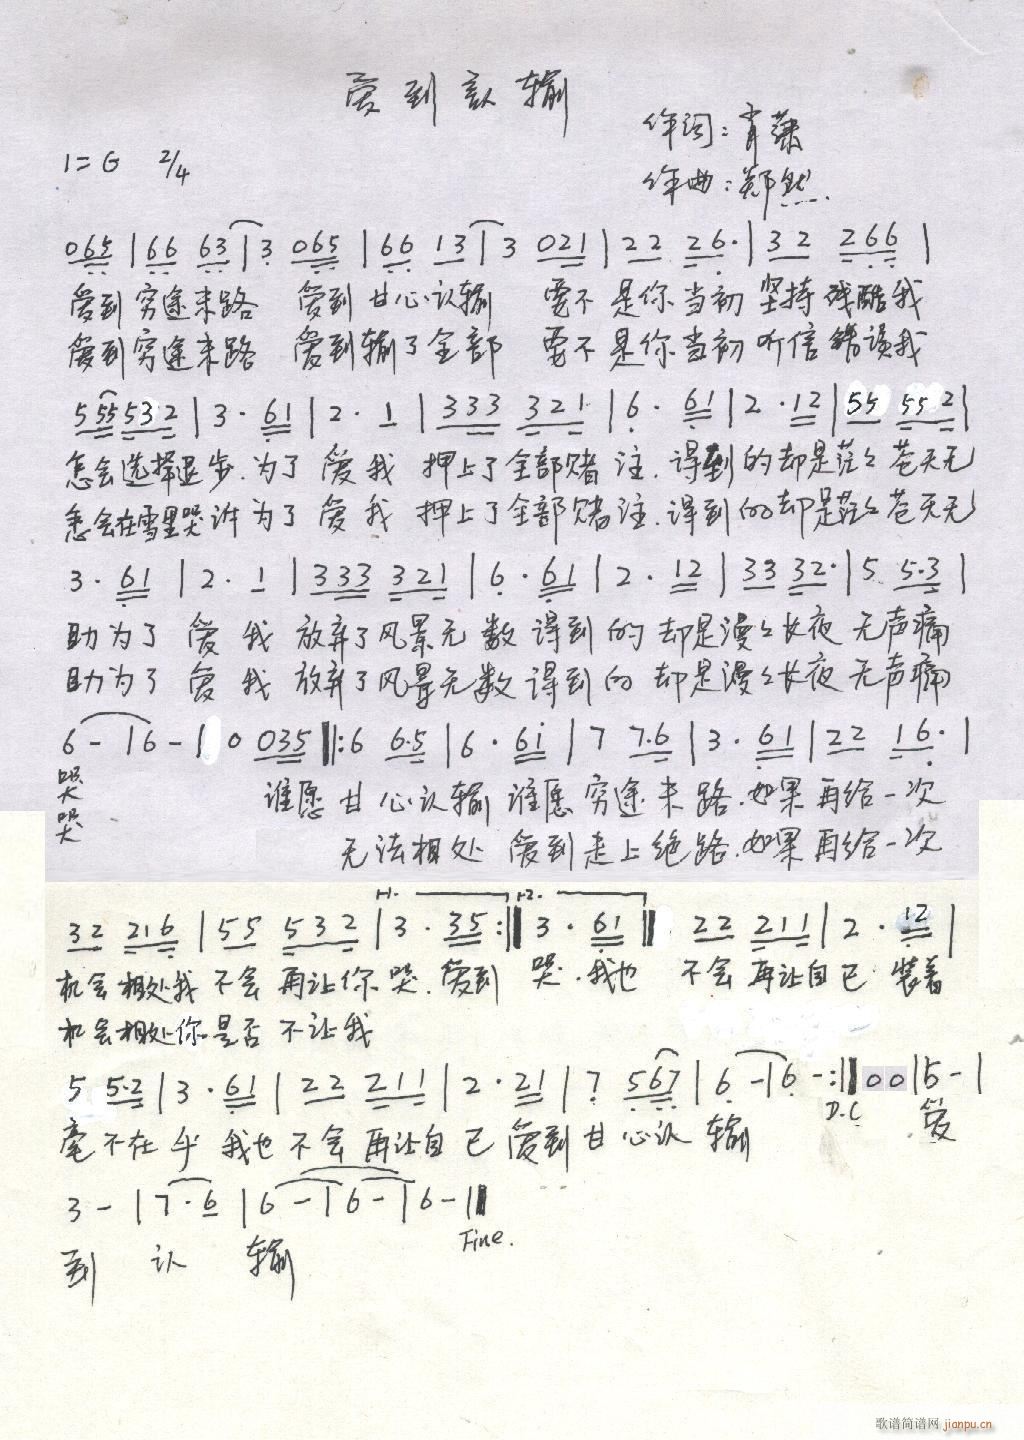 爱到认输
作词：肖
1=G 2/4
作曲：郑然
065|66 63|3 065|66 13|3 021|22 26·|32 266|
爱到穷途末路 爱到甘心认输 要不是你当初坚持残酷我
爱到穷途末路 爱到输了全部 要不是你当初听信错误我
5 55532|3·61|2·1|333 321|6·61|2·12|55 552|
怎会选择退步.为了爱我押上了全部赌注.得到的却是茫々苍天无
怎会在雪里哭许为了爱我押上了全部赌注.得到的却是茫々苍天无
3·61|2·1|333 321|6·61|2·12|33 32·|5 5·3|
助为了爱我放弃了风景无数得到的却是漫々长夜无声痛
助为了爱我放弃了风景无数得到的却是漫々长夜无声痛
6-|6-|0 035‖:6 6·5|6·6i|7 7·6|3·61|22 16·|
哭 谁愿甘心认输谁愿穷途末路.如果再给一次
哭 无法相处爱到走上绝路.如果再给一次
32 216|55 532|3·35:‖3·61‖22 211|2·12|
机会相处我不会再让你哭.爱到哭.我也不会再让自己装着
机会相处你是否不让我
5 5·2|3·61|22 211|2·21|7 567|6-|6-:‖00|5-|
毫不在乎我也不会再让自己爱到甘心认输 D.C 爱
3-|7·6|6-|6-|6-‖
到认输 Fine.
歌谱简谱网 jianpu.cn